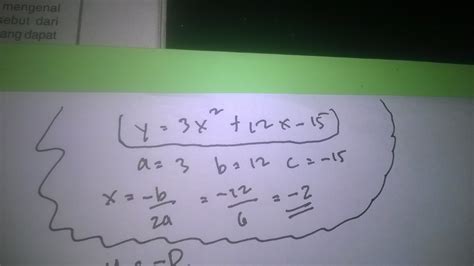 mengenal
sebut dari
ang dapat
y = 3x² + 12x - 15
a = 3 b = 12 c = -15
x = -b/2a = -12/6 = -2